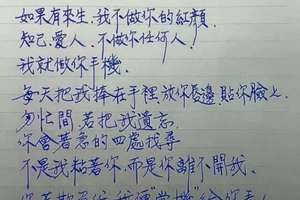 如果有來生,我不做你的紅顏.
知己.愛人.不做你任何人.
我就做你手機.
每天把我捧在手裡放你唇邊貼你臉上.
匆忙間若把我遺忘.
你會著急的四處找尋
不是我黏著你,而是你離不開我.